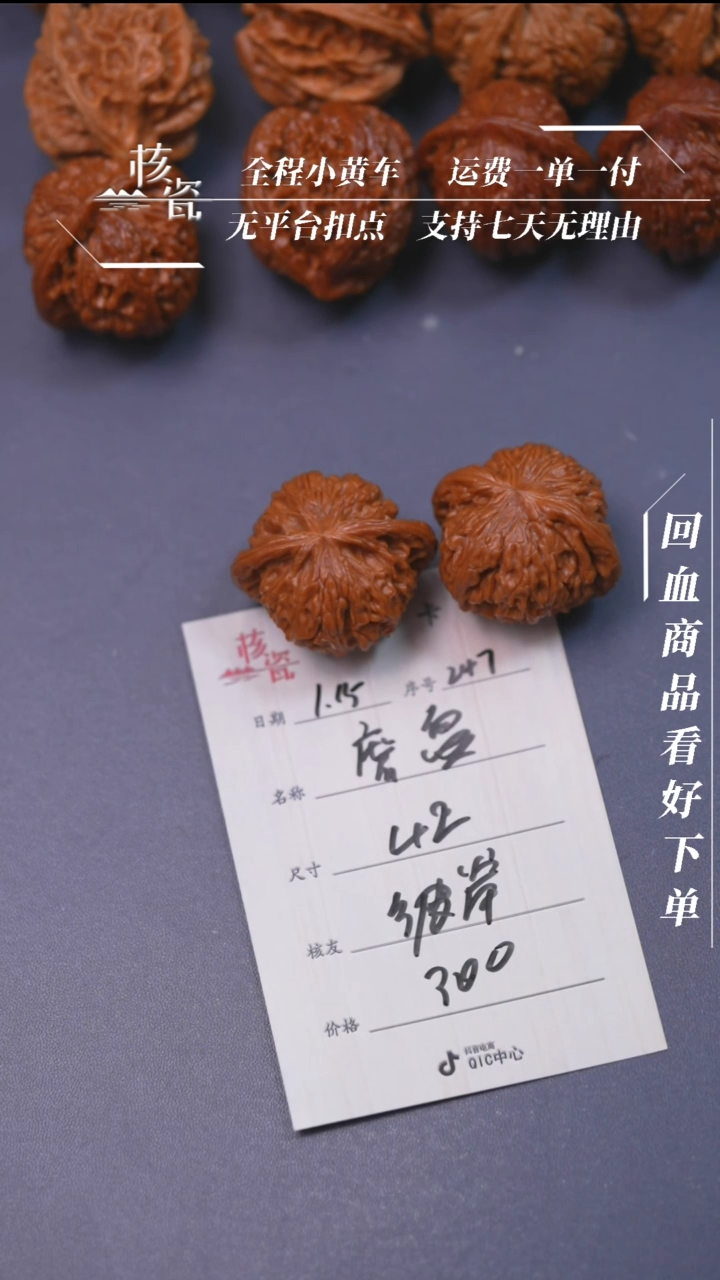 核瓷
全程小黄车 运费一单一付
无平台扣点 支持七天无理由
回血商品看好下单
核瓷
日期 1.15 序号 247
名称 磨盘
尺寸 42
核友 彼岸
价格 300
抖音电商
QIC中心